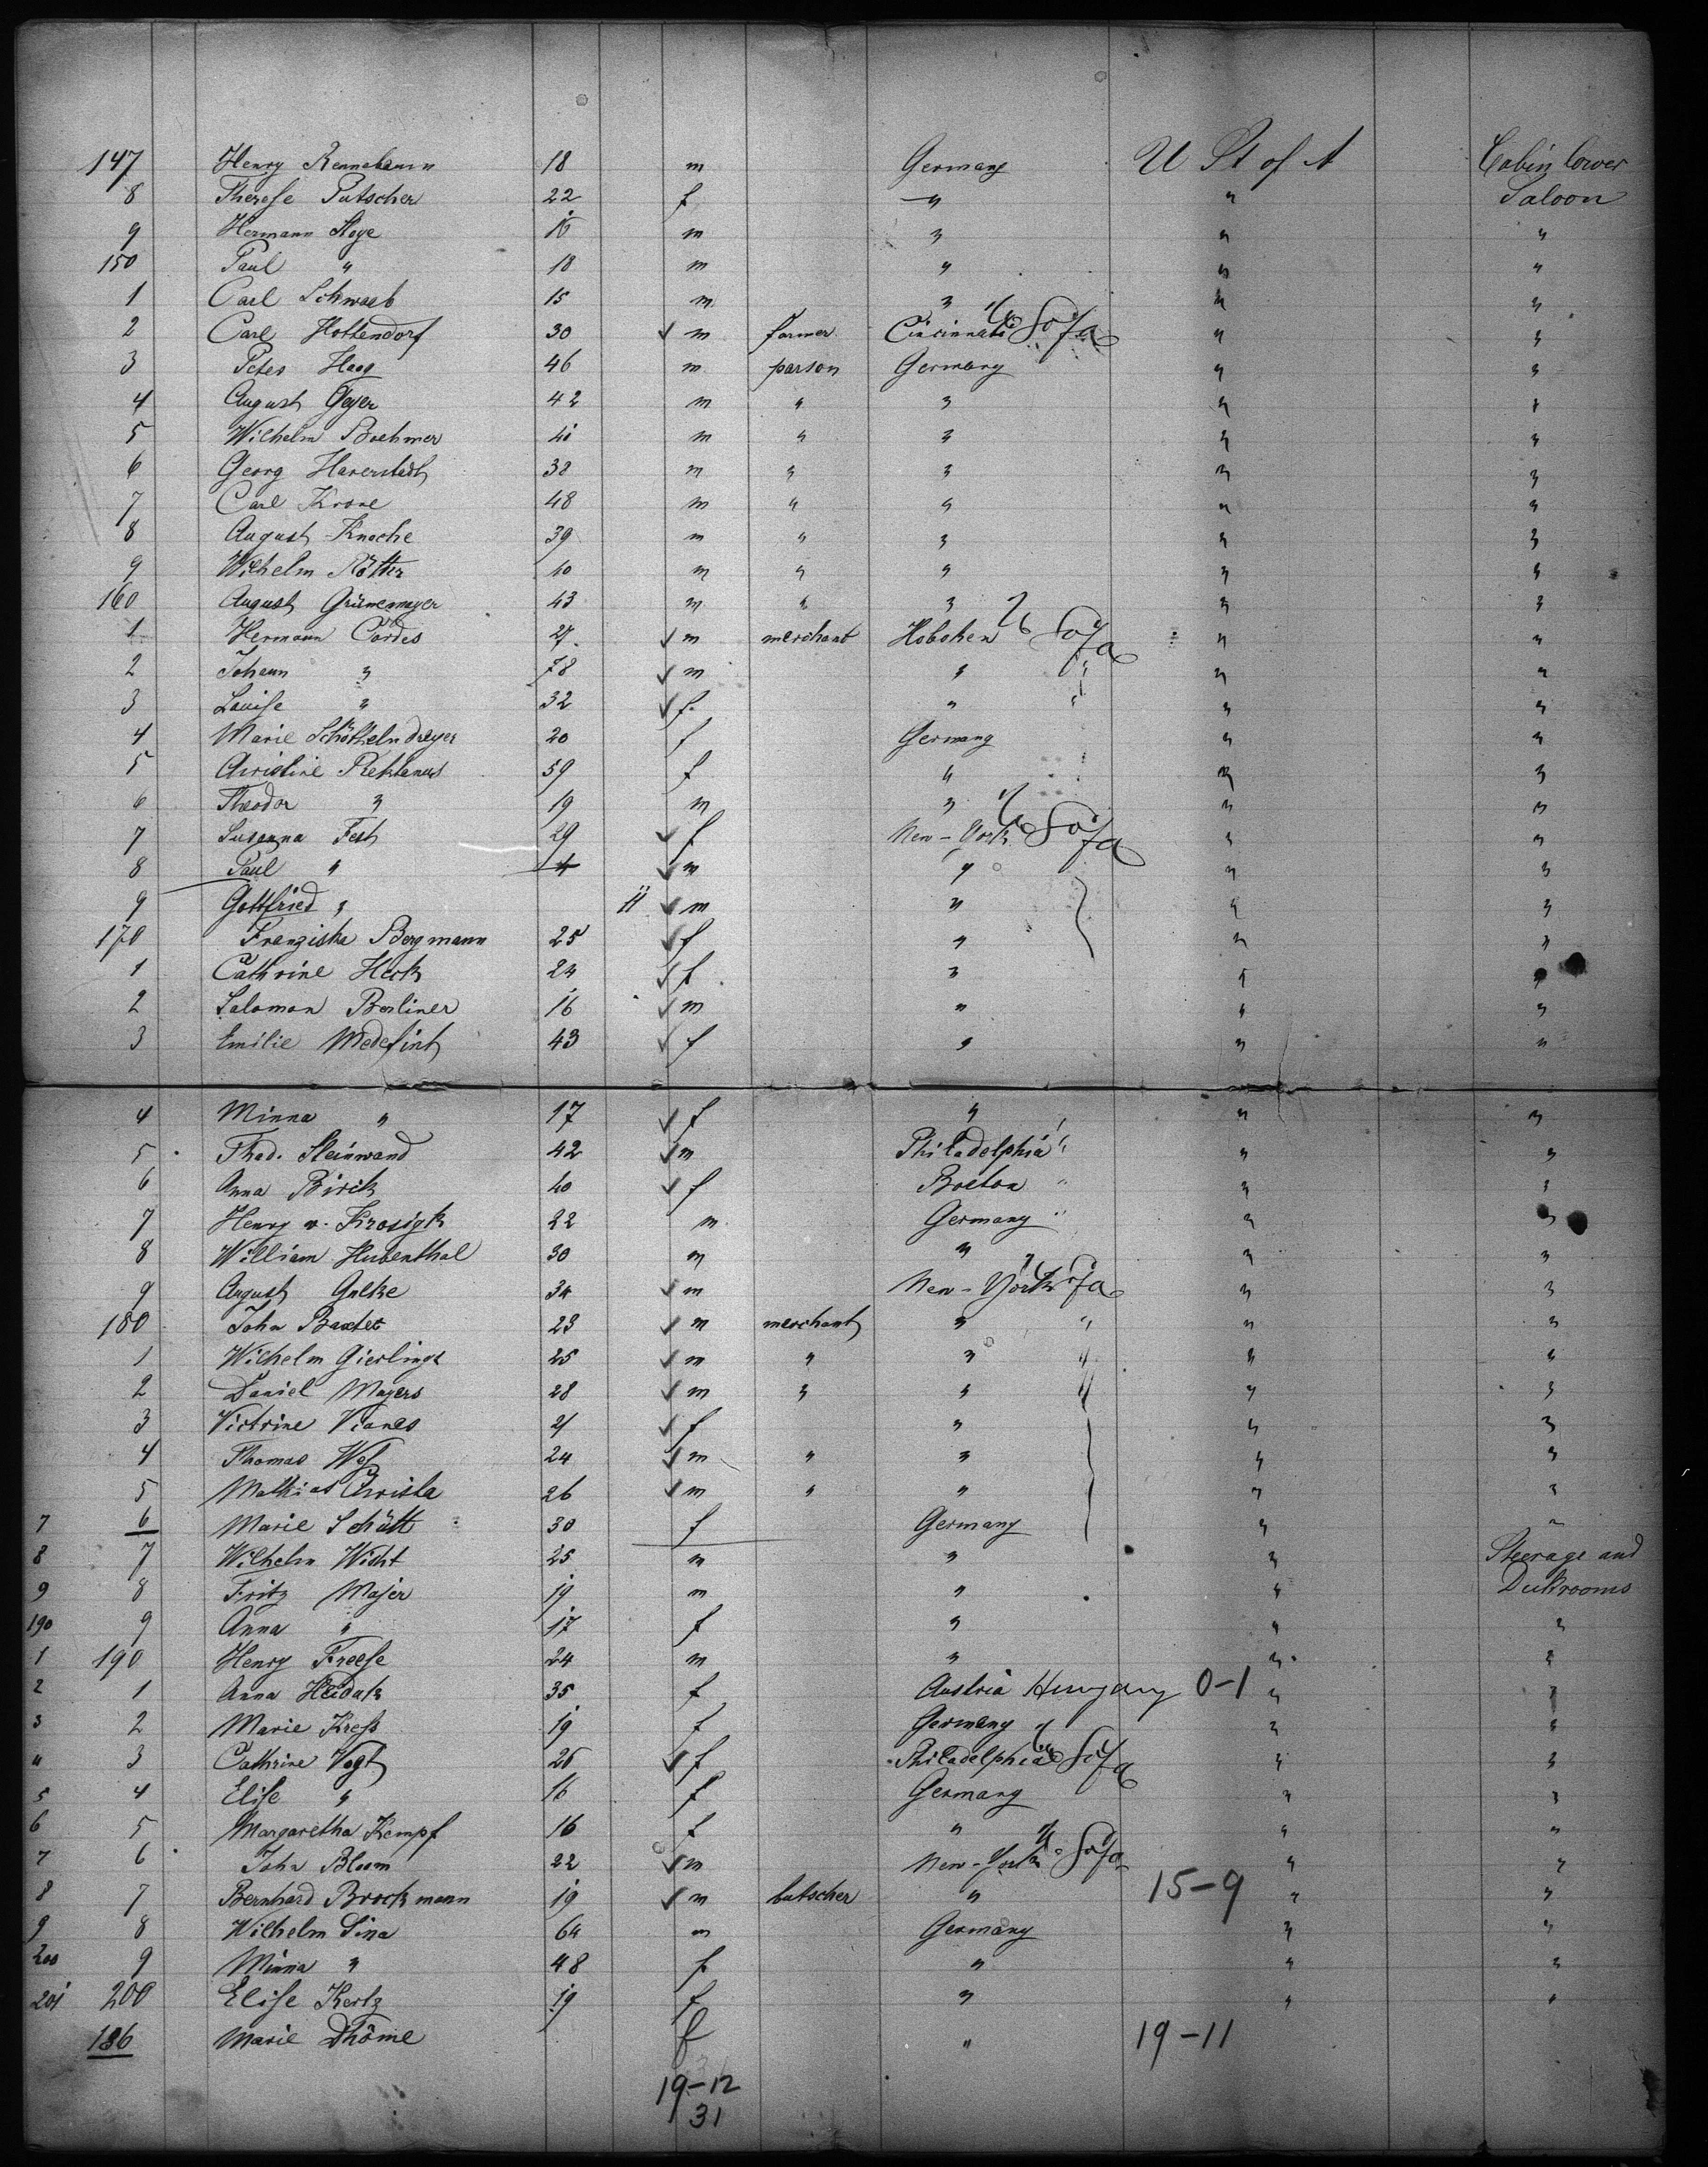 147 Henry Rennebaum 18 m Germany U St of A Cabin lower
8 Therese Putscher 22 f " " Saloon
9 Hermann Hoye 16 m " " "
150 Paul " 18 m " " "
1 Carl Schwaab 15 m " " "
2 Carl Hottendorf 30 ✓ m farmer Cincinnati " "
3 Peter Haag 46 m parson Germany " "
4 August Geyer 42 m " " " "
5 Wilhelm Boehmer 40 m " " " "
6 Georg Haverstadt 38 m " " " "
7 Carl Krone 48 m " " " "
8 August Knoche 39 m " " " "
9 Wilhelm Rötter 40 m " " " "
160 August Grünemeyer 43 m " " " "
1 Hermann Cordes 27 ✓ m merchant Hoboken " "
2 Johann " 78 ✓ m " " "
3 Louise " 32 ✓ f " " "
4 Marie Schöttelndreyer 20 f Germany " "
5 Christine Rektanus 59 f " " "
6 Theodor " 19 m " " "
7 Susanna Fest 29 ✓ f New-York " "
8 Paul " 4 ✓ m " " "
9 Gottfried " 11 ✓ m " " "
170 Franziska Bergmann 25 ✓ f " " "
1 Cathrine Heck 24 ✓ f " " "
2 Salomon Berliner 16 ✓ m " " "
3 Emilie Medefint 43 ✓ f " " "
4 Minna " 17 ✓ f " " "
5 Thad. Steinwand 42 ✓ m Philadelphia " "
6 Anna Birik 40 ✓ f Boston " "
7 Henry v. Krosigk 22 m Germany " "
8 William Hubenthal 30 m " " "
9 August Gulke 34 ✓ m New-York " "
180 John Baxter 23 ✓ m merchant " " "
1 Wilhelm Gierlings 25 ✓ m " " " "
2 Daniel Mayers 28 ✓ m " " " "
3 Victrine Vianes 21 ✓ f " " "
4 Thomas 24 ✓ m " " " "
5 Mathias Christa 26 ✓ m " " " "
7 6 Marie Schütt 30 f Germany " "
8 7 Wilhelm Wicht 25 m " " Steerage and
9 8 Fritz Majer 19 m " " Deckrooms
190 9 Anna " 17 f " " "
1 190 Henry Freese 24 m " " "
2 1 Anna Heidak 35 f Austria Hungary 0-1 " "
3 2 Marie Kress 19 f Germany " "
4 3 Cathrine Vogt 26 ✓ f Philadelphia " "
5 4 Elise " 16 f Germany " "
6 5 Margaretha Kempf 16 f " " "
7 6 John Bloom 22 ✓ m New-York " "
8 7 Bernhard Brockmann 19 ✓ m butscher " 15-9 " "
9 8 Wilhelm Sina 64 m Germany " "
200 9 Minna " 48 f " " "
201 200 Elise Kertz 19 f " " "
186 Marie Thöme f " 19-11
19-12
31